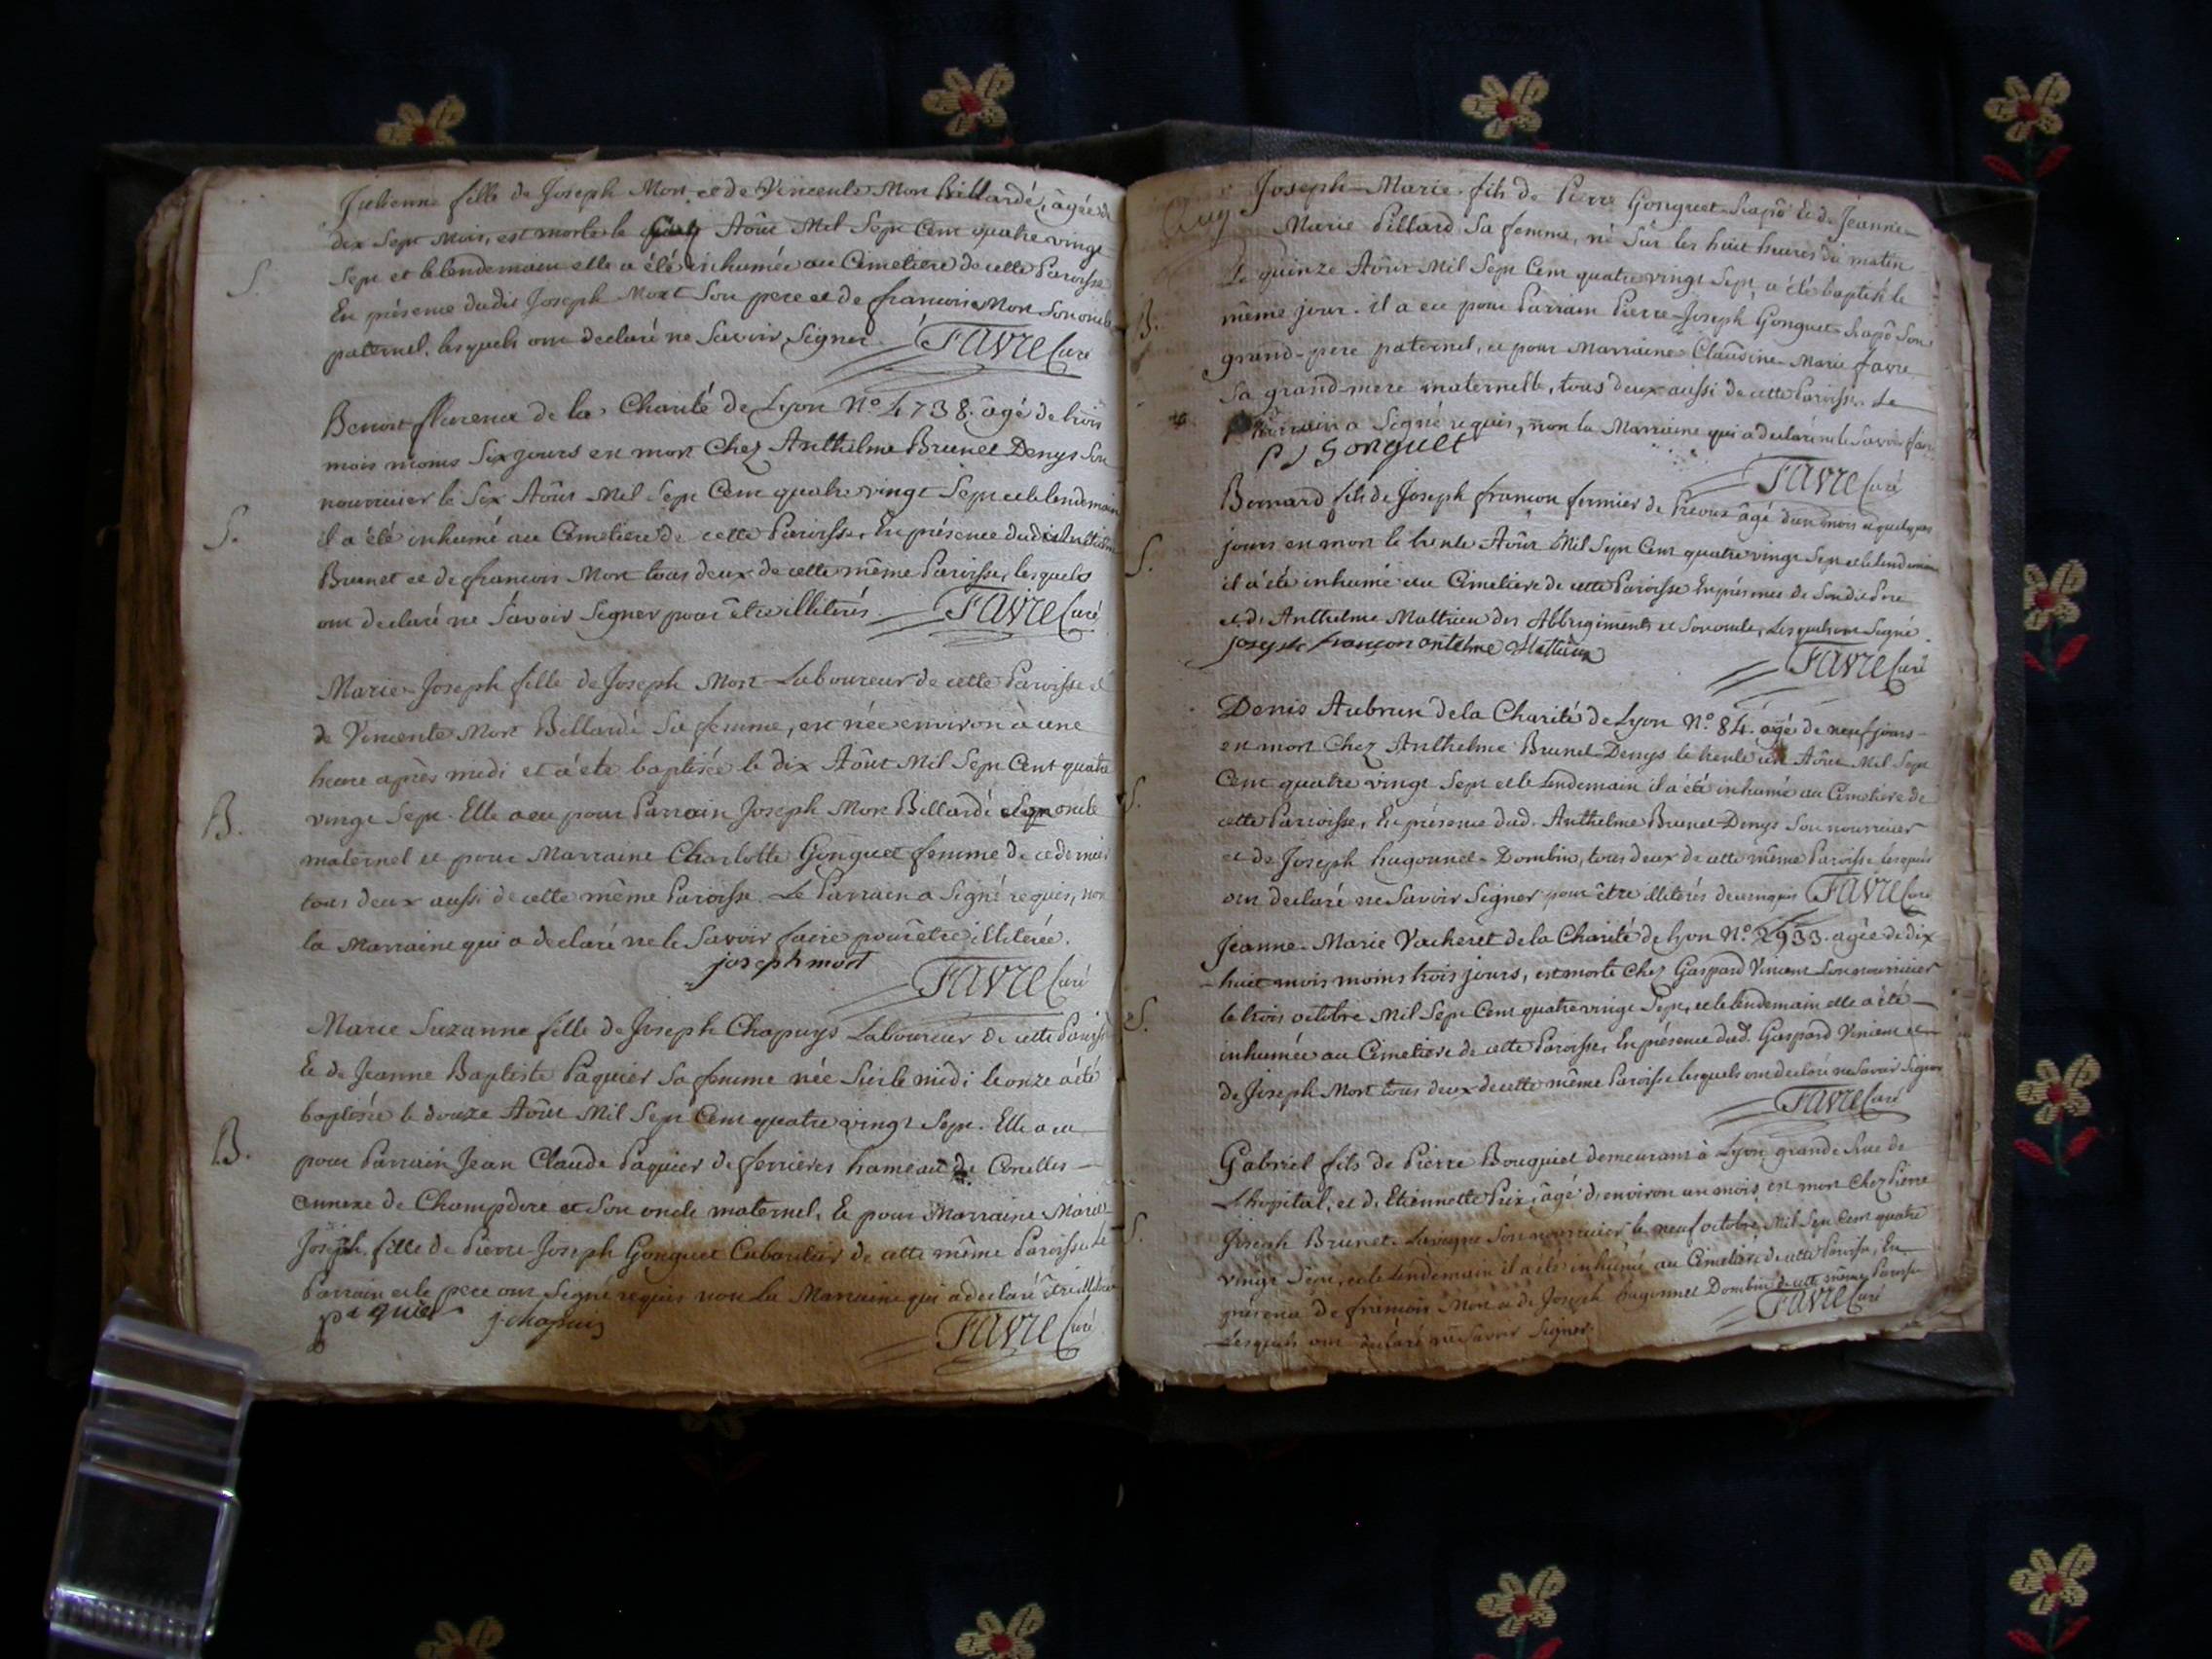 Julienne fille de Joseph Mort et de Vincente Mort Billardé, âgée de
dix Sept Mois, est morte le Août Mil Sept Cent quatre vingt
Sept et le lendemain elle a été inhumée au Cimetiere de cette Paroisse
S.
En présence dudit Joseph Mort Son pere et de francois Mort Son oncle
paternel, lesquels ont declaré ne Savoir Signer. FAVRE Curé
Benoit fflurence de la Charité de Lyon N.º 4738. âgé de trois
mois moins Six jours est mort Chez Anthelme Brunet Denys Son
nourricier le Six Août Mil Sept Cent quatre vingt Sept et le lendemain
S.
il a été inhumé au Cimetiere de cette Paroisse, En présence dudit Anthelme
Brunet et de francois Mort tous deux de cette même Paroisse, lesquels
ont declaré ne Savoir Signer pour être illiterés. FAVRE Curé
Marie-Joseph fille de Joseph Mort Laboureur de cette Paroisse et
de Vincente Mort Billardé Sa femme, est née environ à une
heure après midi et a été baptisée le dix Août Mil Sept Cent quatre
B.
vingt Sept. Elle a eu pour Parrain Joseph Mort Billardé oncle
maternel et pour Marraine Charlotte Gonguet femme de ce dernier
tous deux aussi de cette même Paroisse. Le Parrain a Signé requis, non
la Marraine qui a declaré ne le Savoir faire pour être illiterée.
joseph mort FAVRE Curé
Marie Suzanne fille de Joseph Chapuys Laboureur de cette Paroisse
Et de Jeanne Baptiste Paquier Sa femme née Sur le midi le onze a été
baptisée le douze Août Mil Sept Cent quatre vingt Sept. Elle a eu
B.
pour Parrain Jean Claude Paquier de ferrieres hameau de Corelles
annexe de Champdore et Son oncle maternel, Et pour Marraine Marie
Joseph fille de Pierre-Joseph Gonguet Cabaretier de cette même Paroisse. Le
Parrain et le pere ont Signé requis non La Marraine qui a declaré être illiterée
paquier j. chapuis FAVRE Curé
Joseph-Marie fils de Pierre Gonguet-Chapô Et de Jeanne
Marie Pillard Sa femme, né Sur les huit heures du matin
Le quinze Août Mil Sept Cent quatre vingt Sept, a été baptisé le
B.
même jour. il a eu pour Parrain Pierre-Joseph Gonguet Chapô Son
grand-pere paternel, et pour Marraine Claudine Marie favre
Sa grand-mere maternelle, tous deux aussi de cette Paroisse. Le
Parrain a Signé requis, non la Marraine qui a declaré ne le Savoir faire
P J Gonguet FAVRE Curé
Bernard fils de Joseph francon fermier de âgé d'un mois et quelques
S.
jours est mort le trente Août Mil Sept Cent quatre vingt Sept et le lendemain
il a été inhumé au Cimetiere de cette Paroisse En présence de Son dit Pere
et d'Anthelme Mathieu des Abbergiments et Son oncle, Lesquels ont Signé.
joseph françon antelme Mathieu FAVRE Curé
Denis Aubrun de la Charité de Lyon N.º 84. agé de neuf jours
est mort Chez Anthelme Brunet Denys le trente un Août Mil Sept
S.
Cent quatre vingt Sept et le Lendemain il a été inhumé au Cimetiere de
cette Paroisse, En présence dud. Anthelme Brunet-Denys Son nourricier
et de Joseph hugonnet-Dombin, tous deux de cette même Paroisse Lesquels
ont declaré ne Savoir Signer pour être illiterés FAVRE Curé
Jeanne-Marie Vacheret de la Charité de Lyon N.º 2933. agée de dix
huit mois moins trois jours, est morte chez Gaspard Vincent Son nourricier
S.
le trois octobre Mil Sept Cent quatre vingt Sept, et le lendemain elle a été
inhumée au Cimetiere de cette Paroisse, En présence dud. Gaspard Vincent et
de Joseph Mort tous deux de cette même Paroisse lesquels ont declaré ne Savoir Signer
FAVRE Curé
Gabriel fils de Pierre Bouquiet demeurant à Lyon grande Rue de
L'hopital, et d'Etiennette Prix, âgé d'environ un mois, est mort Chez Pierre
S.
Joseph Brunet-Lavigne Son nourricier le neuf octobre Mil Sept Cent quatre
vingt Sept, et le Lendemain il a été inhumé au Cimetiere de cette Paroisse, En
présence de francois Mort et de Joseph hugonnet Dombin de cette même Paroisse
Lesquels ont declaré ne Savoir Signer. FAVRE Curé